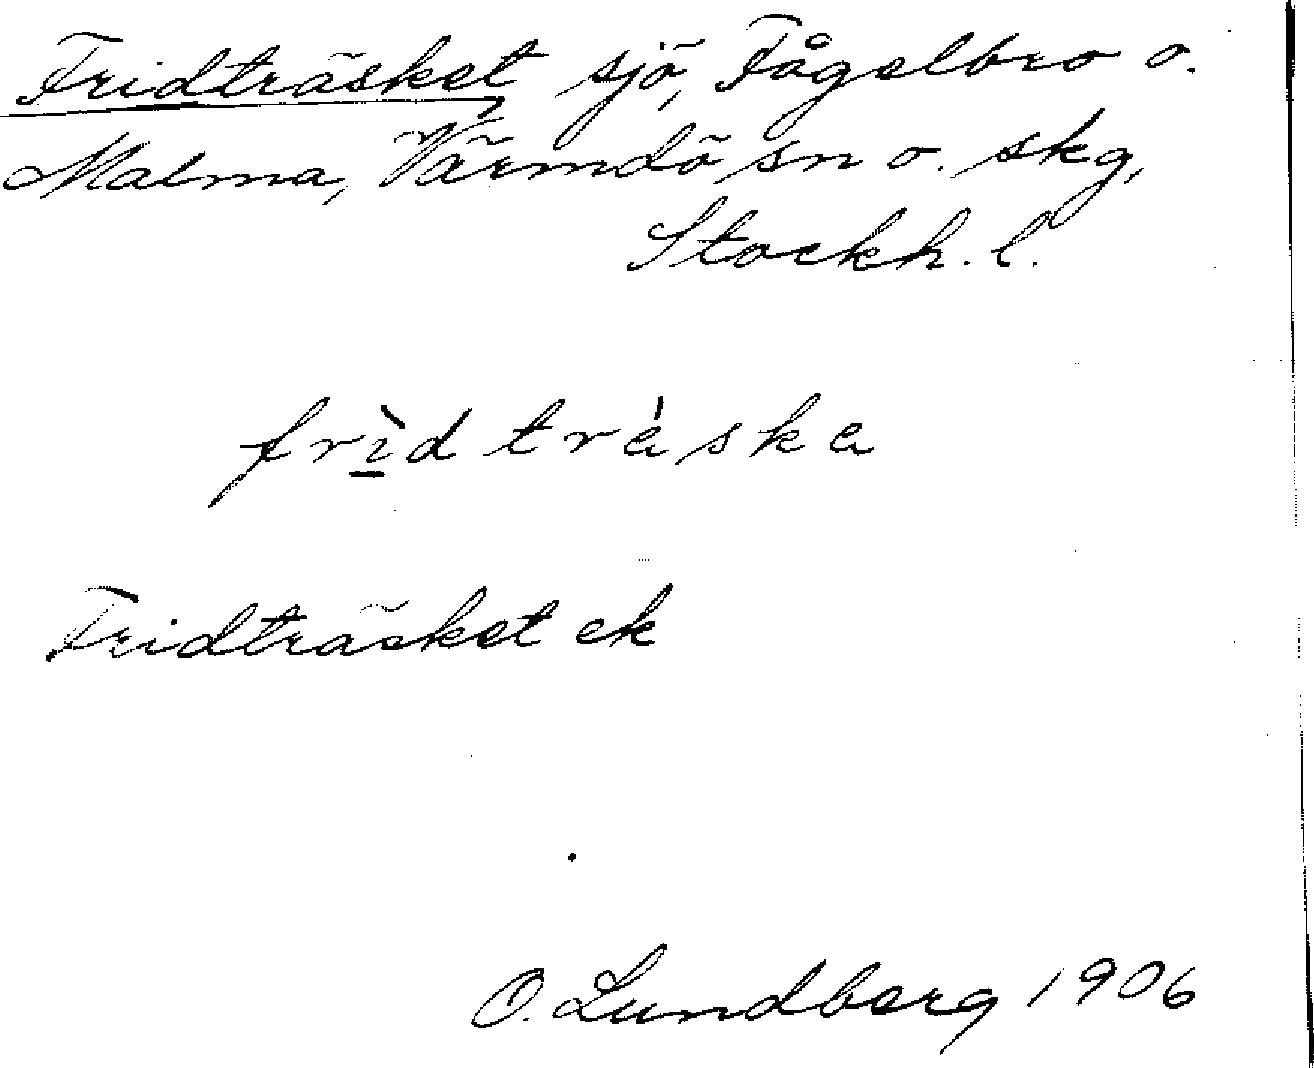 Fridträsket, sjö, Fågelbro o.
Malma, Värmdö sn o. skg,
Stockh. l.
frìd tráska
Fridträsket ek
O. Lundberg 1906